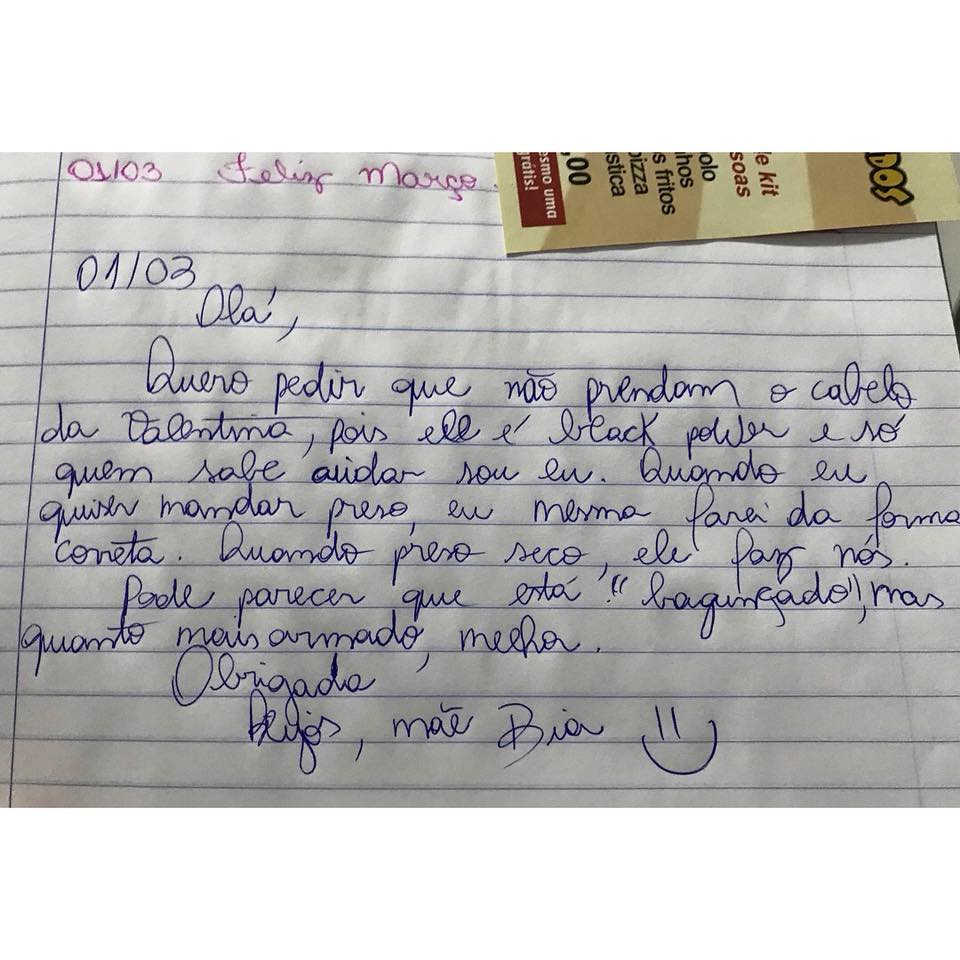 01/03 Feliz Março.
DOS
le kit
soas
olo
nhos
s fritos
pizza
ística
,00
esmo uma
grátis!
01/03
Olá,
Quero pedir que não prendam o cabelo
da Valentina, pois ele é black power e só
quem sabe cuidar sou eu. Quando eu
quiser mandar preso, eu mesma farei da forma
correta. Quando preso seco, ele faz nós.
Pode parecer que está "bagunçado", mas
quanto mais armado, melhor.
Obrigada
Beijos, mãe Bia